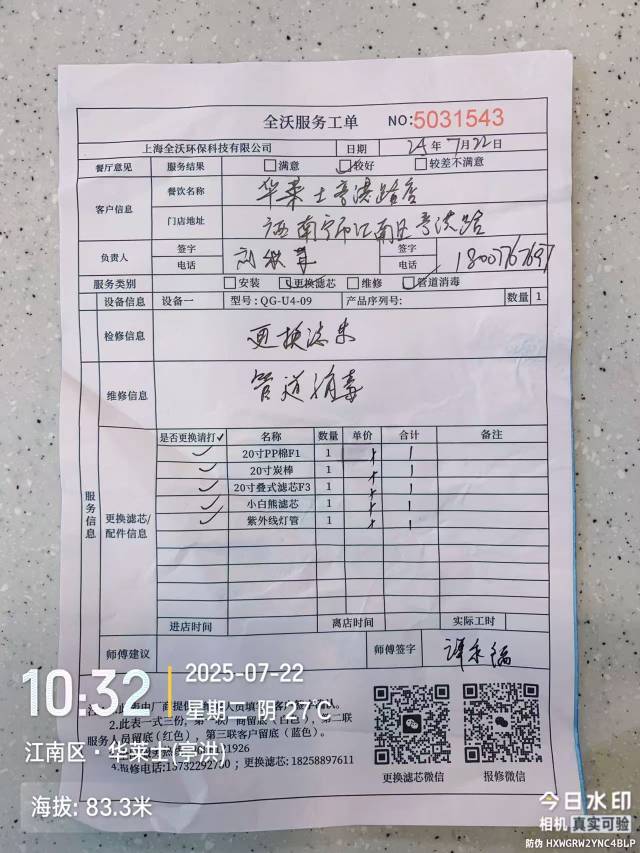 全沃服务工单 NO:5031543
上海全沃环保科技有限公司 日期 年7月22日
餐厅意见 服务结果 满意 较好 较差不满意
客户信息 餐饮名称 华莱士亭洪路店
门店地址 广西南宁市江南区亭洪路
负责人 签字 签字
电话 电话 18007767697
服务类别 安装 更换滤芯 维修 管道消毒
设备信息 设备一 型号:QG-U4-09 产品序列号: 数量 1
检修信息 更换滤
维修信息 管道消毒
服务信息
更换滤芯/配件信息
是否更换请打✓ 名称 数量 单价 合计 备注
✓ 20寸PP棉F1 1 1
✓ 20寸炭棒 1 1
✓ 20寸叠式滤芯F3 1 1
✓ 小白熊滤芯 1 1
✓ 紫外线灯管 1 1
进店时间 离店时间 实际工时
师傅建议 师傅签字
2.此表一式三份,
服务人员留底(红色),第三联客户留底(蓝色)。
4.报修电话:15732292700;更换滤芯:18258897611
更换滤芯微信 报修微信
10:32 2025-07-22
星期二 阴 27℃
江南区·华莱士(亭洪)
海拔: 83.3米
今日水印
相机 真实可验
防伪 HXWGRW2YNC4BLP